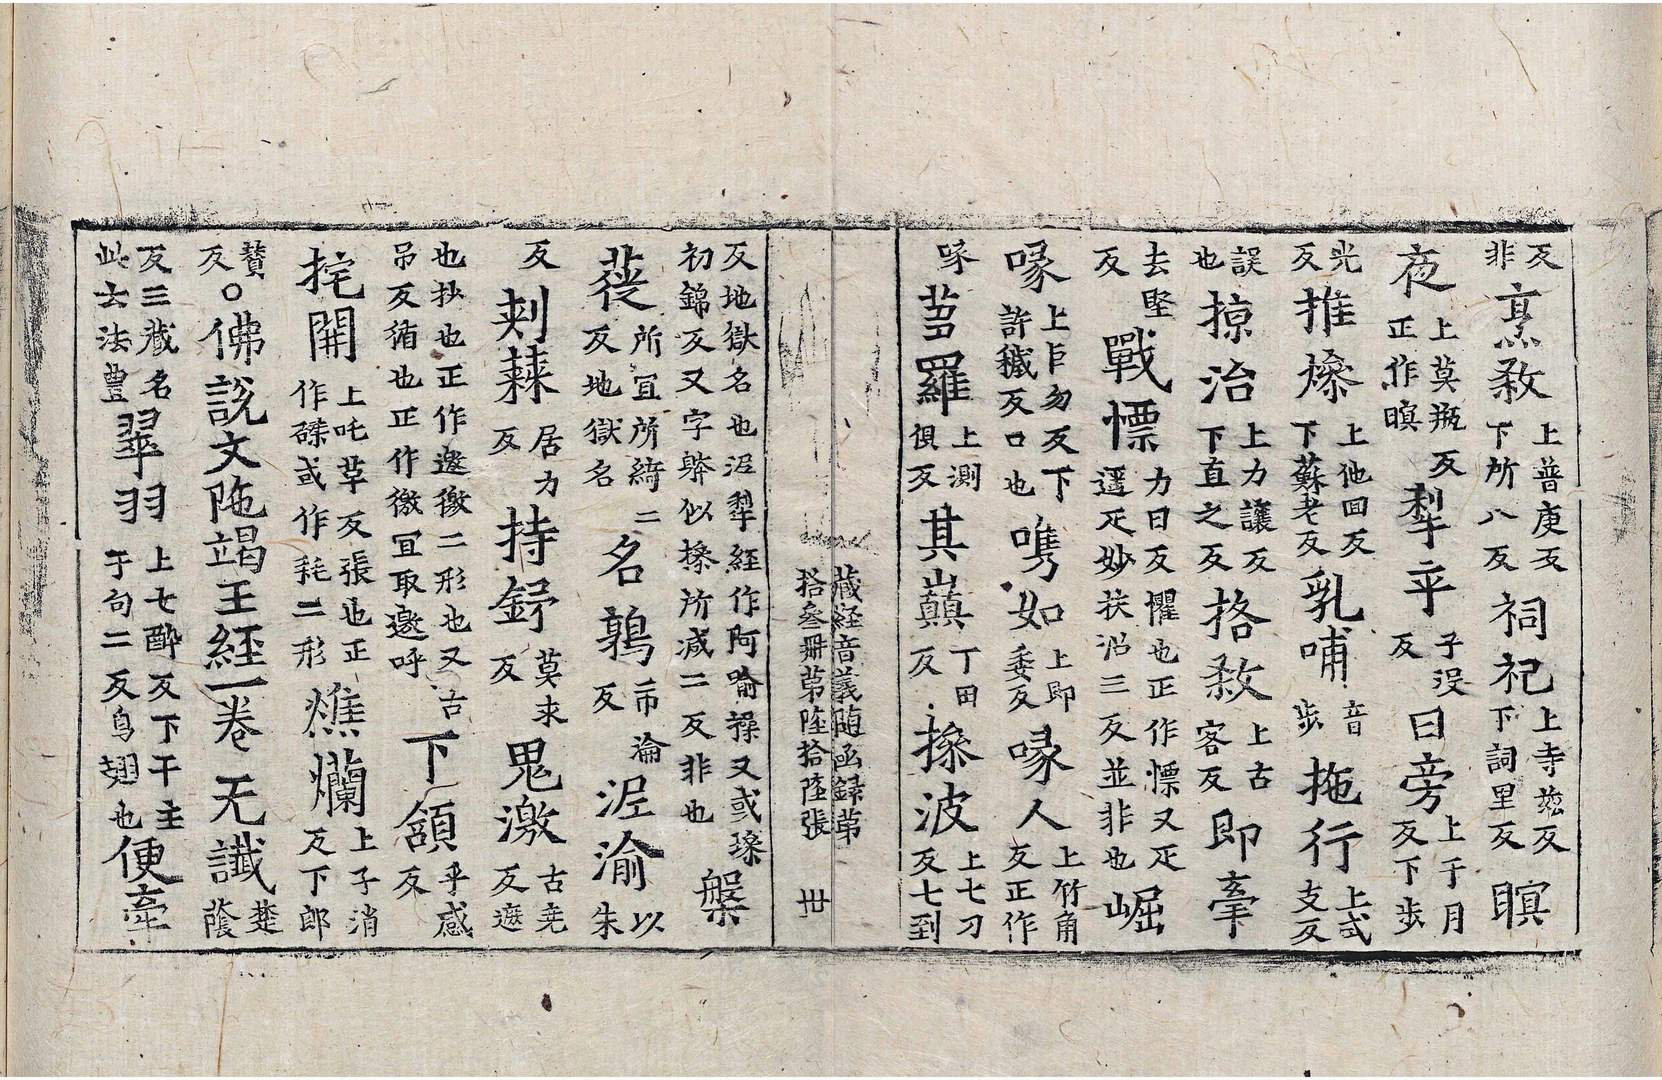 反非烹敎上普庚反下所八反祠祀上寺玆反下詞里反瞑
夜上莫瓶反正作暝犁乎子没反曰旁上于月反下步
光反推㷮上他回反下蘇老反乳哺音步拖行上式支反
誤也掠治上力讓反下直之反挌敎上古客反即牽
去堅反戰慓力日反懼也正作慓又疋遥疋妙扶沼三反並非也崛
㖨上巨勿反下許穢反口也嶲如上即委反㖨人上竹角反正作
㖨䓟羅上測俱反其巔丁田反操波上七刀反七到
藏経音義随函録第拾叁冊第陸拾陸張 丗
反地獄名也沼犁経作阿喻操又或璪初錦反又字樣似操所减二反非也槃
蓰所冝所綺二反地獄名名鶉市淪反泥渝以朱
反剌蕀居力反持鋢莫求反鬼激古堯反遮
也抄也正作邀徼二形也又古吊反循也正作徼冝取邀呼下頷乎感反
挓開上吒草反張也正作磔或作毦二形燋爛上子消反下郎
賛反○佛說文陁竭王經一卷无讖楚蔭
反三藏名此云法豊翠羽上七醉反下干主于句二反鳥翅也便牽